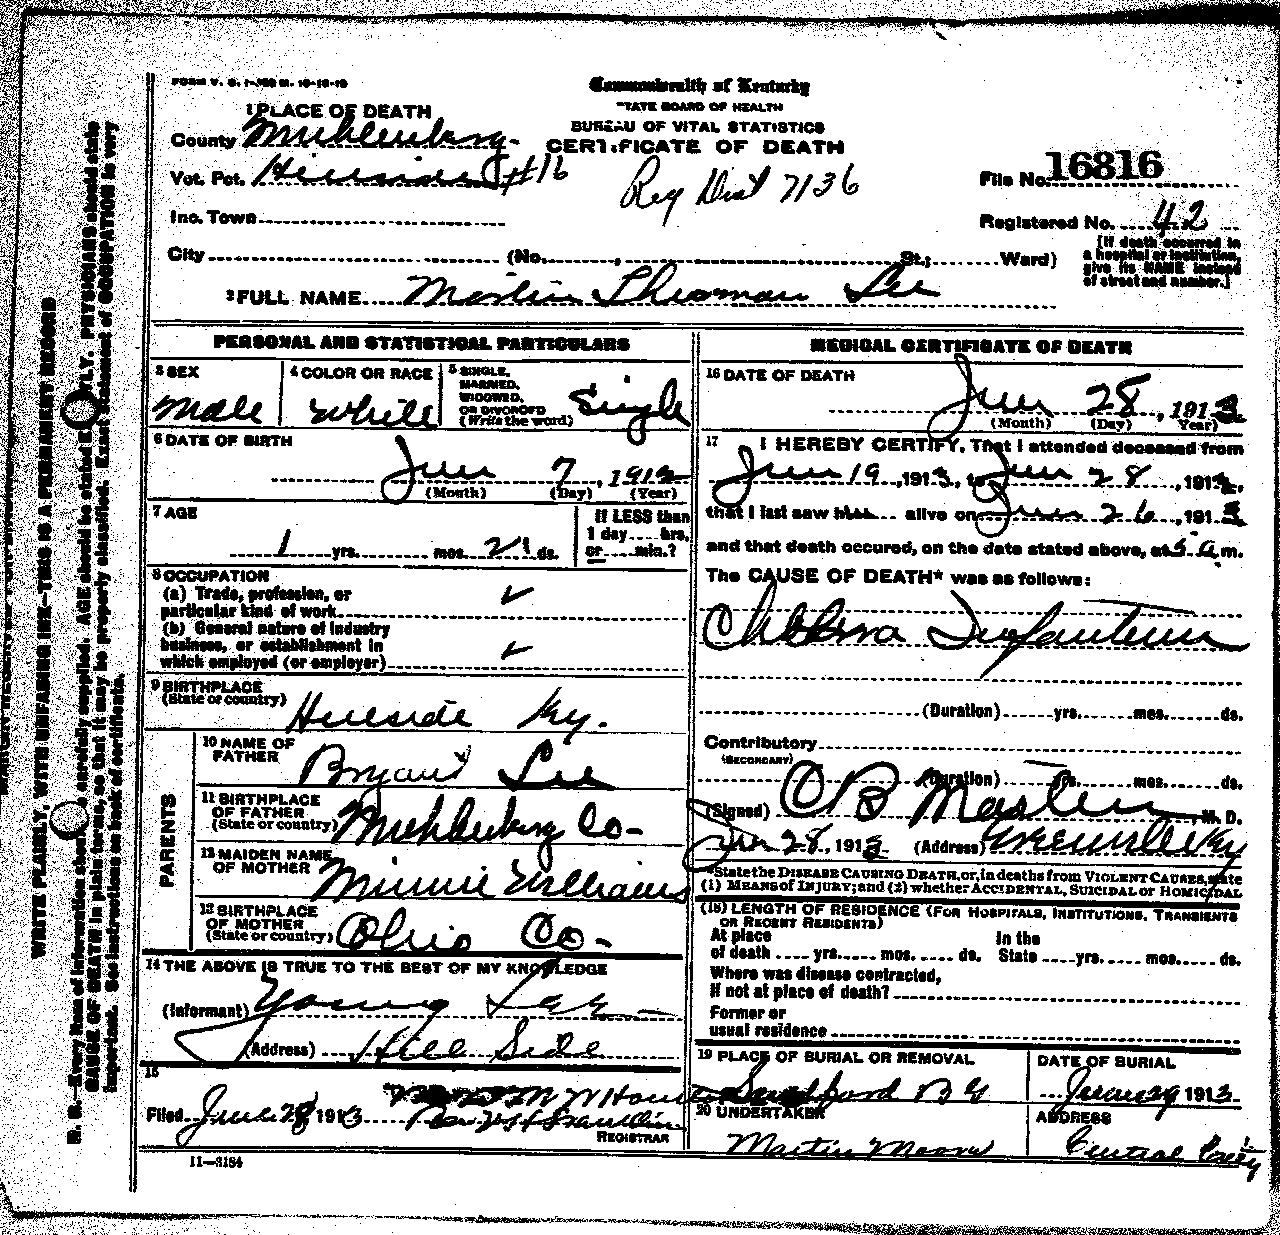 FORM V. S. 1-
Commonwealth of Kentucky
STATE BOARD OF HEALTH
BUREAU OF VITAL STATISTICS
CERTIFICATE OF DEATH
1 PLACE OF DEATH
County Muhlenberg
Vot. Pct. Hillside #16
Reg Dist 7136
File No. 16816
Inc. Town
Registered No. 42
City (No. , St.; Ward)
[If death occurred in a hospital or institution, give its NAME instead of street and number.]
2 FULL NAME Martin Thurman Lee
PERSONAL AND STATISTICAL PARTICULARS
3 SEX
Male
4 COLOR OR RACE
White
5 SINGLE, MARRIED, WIDOWED, OR DIVORCED (Write the word)
Single
6 DATE OF BIRTH
June 7, 1912
(Month) (Day) (Year)
7 AGE
1 yrs. mos. 21 ds.
If LESS than 1 day hrs. or min.?
8 OCCUPATION
(a) Trade, profession, or particular kind of work
(b) General nature of industry business, or establishment in which employed (or employer)
9 BIRTHPLACE
(State or country) Hillside Ky.
PARENTS
10 NAME OF FATHER Bryant Lee
11 BIRTHPLACE OF FATHER (State or country) Muhlenberg Co-
12 MAIDEN NAME OF MOTHER Minnie Williams
13 BIRTHPLACE OF MOTHER (State or country) Ohio Co-
14 THE ABOVE IS TRUE TO THE BEST OF MY KNOWLEDGE
(Informant) Young Lee
(Address) Hill Side
15
Filed June 28 1913
REGISTRAR
11-3184
MEDICAL CERTIFICATE OF DEATH
16 DATE OF DEATH
June 28, 1913
(Month) (Day) (Year)
17 I HEREBY CERTIFY, That I attended deceased from
June 19, 1913, to June 28, 1913,
that I last saw him alive on June 26, 1913
and that death occured, on the date stated above, at 5 a m.
The CAUSE OF DEATH* was as follows:
Cholera Infantum
(Duration) yrs. mos. ds.
Contributory
(SECONDARY)
(Duration) yrs. mos. ds.
(Signed) O B M. D.
June 28, 1913 (Address) Greenville Ky
*State the DISEASE CAUSING DEATH, or, in deaths from VIOLENT CAUSES, state
(1) MEANS OF INJURY; and (2) whether ACCIDENTAL, SUICIDAL OR HOMICIDAL
(18) LENGTH OF RESIDENCE (FOR HOSPITALS, INSTITUTIONS, TRANSIENTS OR RECENT RESIDENTS)
At place of death yrs. mos. ds. In the State yrs. mos. ds.
Where was disease contracted,
If not at place of death?
Former or
usual residence
19 PLACE OF BURIAL OR REMOVAL
DATE OF BURIAL
June 29 1913
20 UNDERTAKER
Martin Moore
ADDRESS
Central City
WRITE PLAINLY, WITH UNFADING INK—THIS IS A PERMANENT RECORD
N. B.—Every item of information should be carefully supplied. AGE should be stated EXACTLY. PHYSICIANS should state
CAUSE OF DEATH in plain terms, so that it may be properly classified. Exact statement of OCCUPATION is very
important. See instructions on back of certificate.